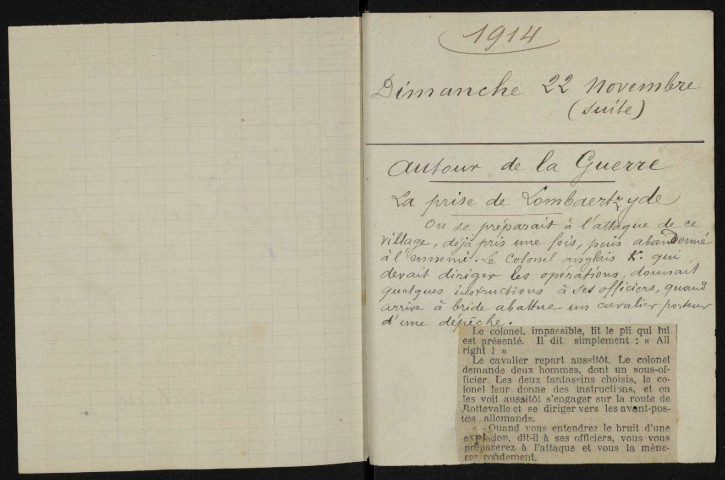 1914
Dimanche 22 Novembre
(suite)
Autour de la Guerre
La prise de Lombaertzyde
On se préparait à l'attaque de ce
village, déjà pris une fois, puis abandonné
à l'ennemi. Le Colonel anglais K. qui
devait diriger les opérations, donnait
quelques instructions à ses officiers, quand
arrive à bride abattue un cavalier porteur
d'une dépêche.
Le colonel, impassible, lit le pli qui lui
est présenté. Il dit simplement : « All
right ! »
Le cavalier repart aussitôt. Le colonel
demande deux hommes, dont un sous-of-
ficier. Les deux fantassins choisis, le co-
lonel leur donne des instructions, et on
les voit aussitôt s'engager sur la route de
Rottevalle et se diriger vers les avant-pos-
tes allemands.
« Quand vous entendrez le bruit d'une
explosion, dit-il à ses officiers, vous vous
préparerez à l'attaque et vous la mène-
rez rondement.